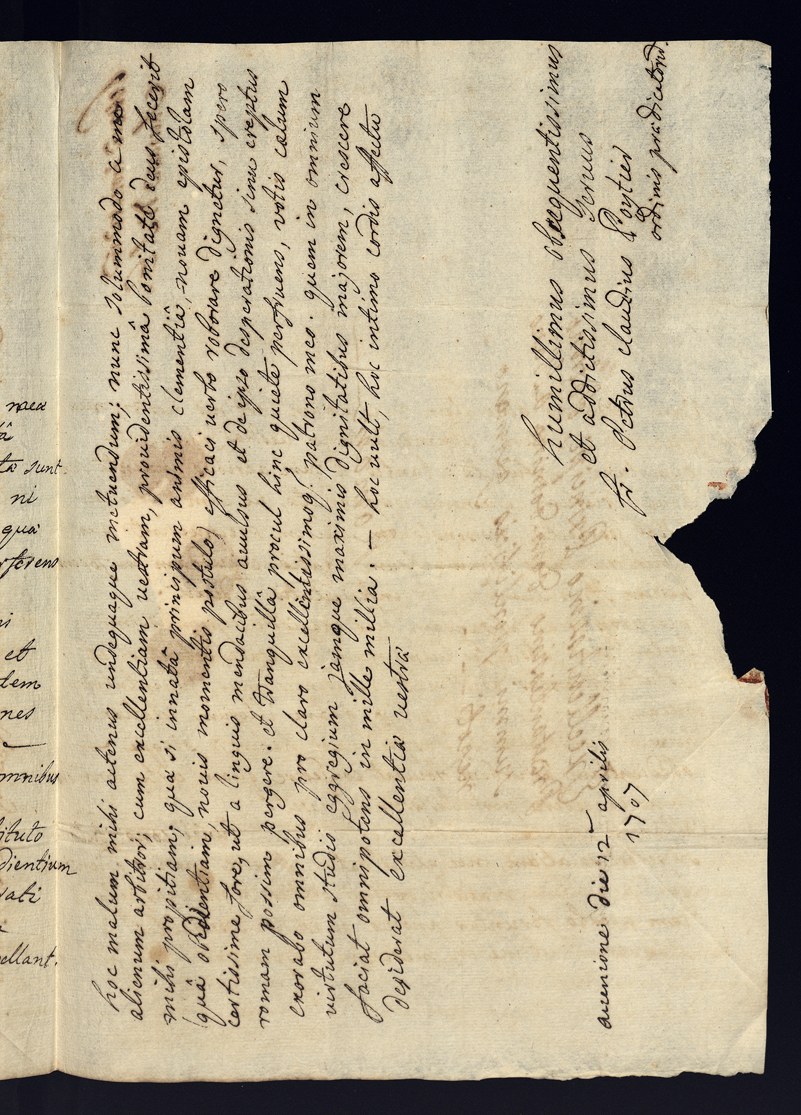 hoc malum mihi actenus undequaque metuendum; nunc solummodo a me
alienum arbitror; cum excellentiam vestram, providentissimâ bonitate deus fecerit
mihi propitiam; qua si innatâ principum animis clementiâ, novam epistolam
(quâ obedientiam, novis momentis postulo) efficaci verbo roborare dignetur, spero
certissime fore, ut a linguis mendacibus avulsus et de ipso desperationis sinu ereptus
romam possim pergere. et tranquillâ procul hinc quiete perfruens, votis cælum
exorabo omnibus pro claro excellentissimoq. patrono meo. quem in omnium
virtutum studiis eggregium jamque maximis dignitatibus majorem, crescere
faciat omnipotens in mille millia. — hoc vult, hoc intimo cordis affectu
desiderat excellentiæ vestræ
humillimus obsequentissimus
et addictissimus servus
fr. Petrus claudius Poytier
ordinis prædicatorum
avenione die 12ª aprilis
1707
mea
â
ta sunt.
ni
qua
et
dem
nes
omnibus
tituto
dientium
vati
ellant.